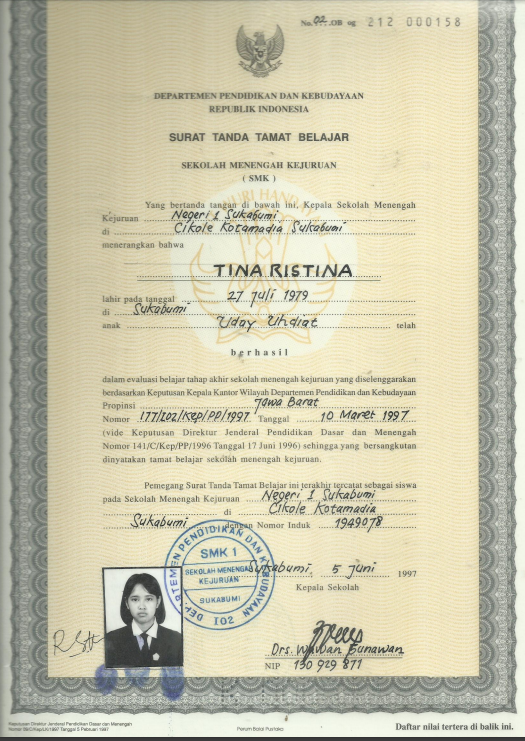 No. 02 .OB og 212 000158
DEPARTEMEN PENDIDIKAN DAN KEBUDAYAAN
REPUBLIK INDONESIA
SURAT TANDA TAMAT BELAJAR
SEKOLAH MENENGAH KEJURUAN
( SMK )
Yang bertanda tangan di bawah ini, Kepala Sekolah Menengah
Kejuruan Negeri 1 Sukabumi
di Cikole Kotamadia Sukabumi
menerangkan bahwa
TINA RISTINA
lahir pada tanggal 27 Juli 1979
di Sukabumi
anak Uday Uhdiat telah
berhasil
dalam evaluasi belajar tahap akhir sekolah menengah kejuruan yang diselenggarakan
berdasarkan Keputusan Kepala Kantor Wilayah Departemen Pendidikan dan Kebudayaan
Propinsi Jawa Barat
Nomor 177/I02/Kep/PP/1997 Tanggal 10 Maret 1997
(vide Keputusan Direktur Jenderal Pendidikan Dasar dan Menengah
Nomor 141/C/Kep/PP/1996 Tanggal 17 Juni 1996) sehingga yang bersangkutan
dinyatakan tamat belajar sekolah menengah kejuruan.
Pemegang Surat Tanda Tamat Belajar ini terakhir tercatat sebagai siswa
pada Sekolah Menengah Kejuruan Negeri 1 Sukabumi
di Cikole Kotamadia
Sukabumi dengan Nomor Induk 1949078
Sukabumi, 5 Juni 1997
Kepala Sekolah
DEPARTEMEN PENDIDIKAN DAN KEBUDAYAAN
SMK 1
SEKOLAH MENENGAH
KEJURUAN
SUKABUMI
I02
Drs. Wawan Gunawan
NIP 130 929 871
Keputusan Direktur Jenderal Pendidikan Dasar dan Menengah
Tanggal 5 Pebruari 1997
Perum Balai Pustaka
Daftar nilai tertera di balik ini.